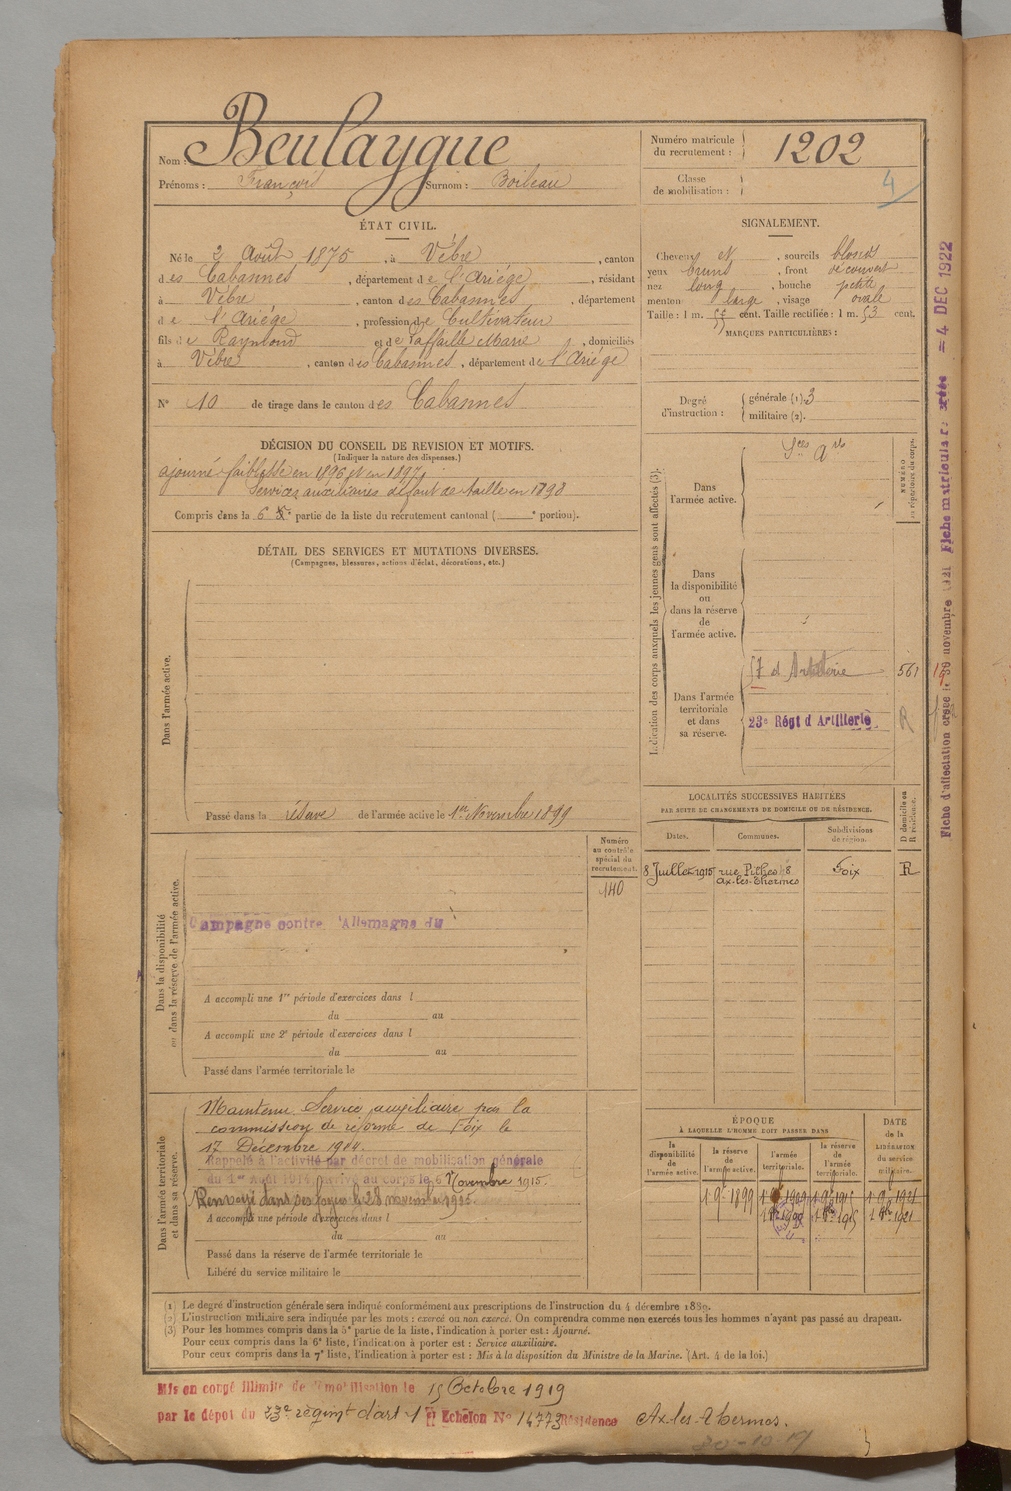 Nom : Beulaygue
Prénoms : François Surnom : Boileau
Numéro matricule du recrutement : 1202
Classe de mobilisation :
4
ÉTAT CIVIL.
Né le 2 Août 1875, à Vèbre, canton
des Cabannes, département de l'Ariége, résidant
à Vèbre, canton des Cabannes, département
de l'Ariége, profession de Cultivateur
fils de Raymond et de Laffaille Marie, domiciliés
à Vèbre, canton des Cabannes, département de l'Ariége
N° 10 de tirage dans le canton des Cabannes
SIGNALEMENT.
Cheveux et, sourcils blonds
yeux bruns, front découvert
nez long, bouche petite
menton large, visage ovale
Taille : 1 m. cent. Taille rectifiée : 1 m. 53 cent.
MARQUES PARTICULIÈRES :
Degré d'instruction : générale (1). 3
militaire (2).
DÉCISION DU CONSEIL DE REVISION ET MOTIFS.
(Indiquer la nature des dispenses.)
ajourné faiblesse en 1896 et en 1897
Services auxiliaires défaut de taille en 1898
Compris dans la 6e partie de la liste du recrutement cantonal ( e portion).
DÉTAIL DES SERVICES ET MUTATIONS DIVERSES.
(Campagnes, blessures, actions d'éclat, décorations, etc.)
Dans l'armée active.
Passé dans la réserve de l'armée active le 1er Novembre 1899
Indication des corps auxquels les jeunes gens sont affectés (3).
NUMÉRO au répertoire du corps.
Dans l'armée active.
Sces Ares
Dans la disponibilité ou dans la réserve de l'armée active.
Dans l'armée territoriale et dans sa réserve.
57 d'Artillerie 561
23e Régt d'Artillerie R
LOCALITÉS SUCCESSIVES HABITÉES
PAR SUITE DE CHANGEMENTS DE DOMICILE OU DE RÉSIDENCE.
D domicile ou R résidence.
Dates. Communes. Subdivisions de région.
8 Juillet 1915 rue 8 Ax-les-Thermes Foix R
Dans la disponibilité ou dans la réserve de l'armée active.
Numéro au contrôle spécial du recrutement.
140
Campagne contre l'Allemagne du
A accompli une 1re période d'exercices dans l
du au
A accompli une 2e période d'exercices dans l
du au
Passé dans l'armée territoriale le
Dans l'armée territoriale et dans sa réserve.
Maintenu Service auxiliaire par la
commission de réforme de Foix le
17 Décembre 1914.
Rappelé à l'activité par décret de mobilisation générale
du 1er août 1914, arrivé au corps le 6 Novembre 1915.
Renvoyé dans ses foyers le 28 novembre 1915.
A accompli une période d'exercices dans l
du au
Passé dans la réserve de l'armée territoriale le
Libéré du service militaire le
ÉPOQUE
À LAQUELLE L'HOMME DOIT PASSER DANS
DATE de la LIBÉRATION du service militaire.
la disponibilité de l'armée active. la réserve de l'armée active. l'armée territoriale. la réserve de l'armée territoriale.
1 9e 1899 1 9e 1909 1 9e 1915 1 9e 1921
1915 1921
(1) Le degré d'instruction générale sera indiqué conformément aux prescriptions de l'instruction du 4 décembre 1889.
(2) L'instruction militaire sera indiquée par les mots : exercé ou non exercé. On comprendra comme non exercés tous les hommes n'ayant pas passé au drapeau.
(3) Pour les hommes compris dans la 5e partie de la liste, l'indication à porter est : Ajourné.
Pour ceux compris dans la 6e liste, l'indication à porter est : Service auxiliaire.
Pour ceux compris dans la 7e liste, l'indication à porter est : Mis à la disposition du Ministre de la Marine. (Art. 4 de la loi.)
Mis en congé illimité de démobilisation le 15 Octobre 1919
par le dépot du 23e régimt d'art 1er Echelon N° 14773 Résidence Ax-les-Thermes.
20-10-19
Fiche d'affectation créée le 30 novembre 1921 Fiche matricule créée = 4 DEC 1922